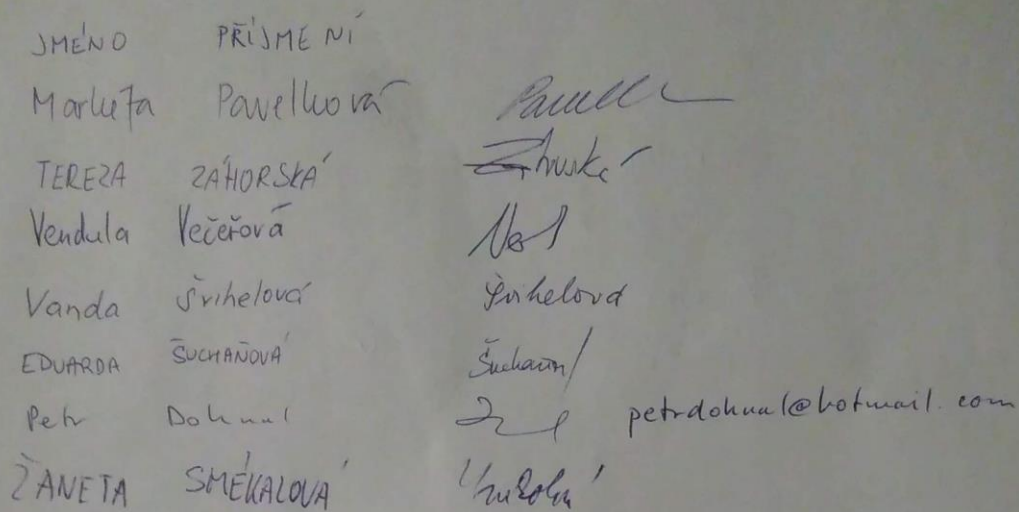 JMÉNO PŘÍJMENÍ
Markéta Pavelková
TEREZA ZÁHORSKÁ
Vendula Večeřová
Vanda Švihelová Švihelová
EDUARDA ŠUCHAŇOVÁ
Petr Dohnal petrdohnal@hotmail.com
ŽANETA SMÉKALOVÁ